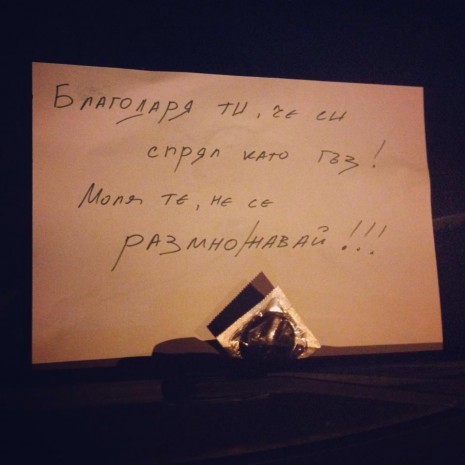 Благодаря ти, че си
спрял като гъз!
Моля те, не се
размножавай!!!